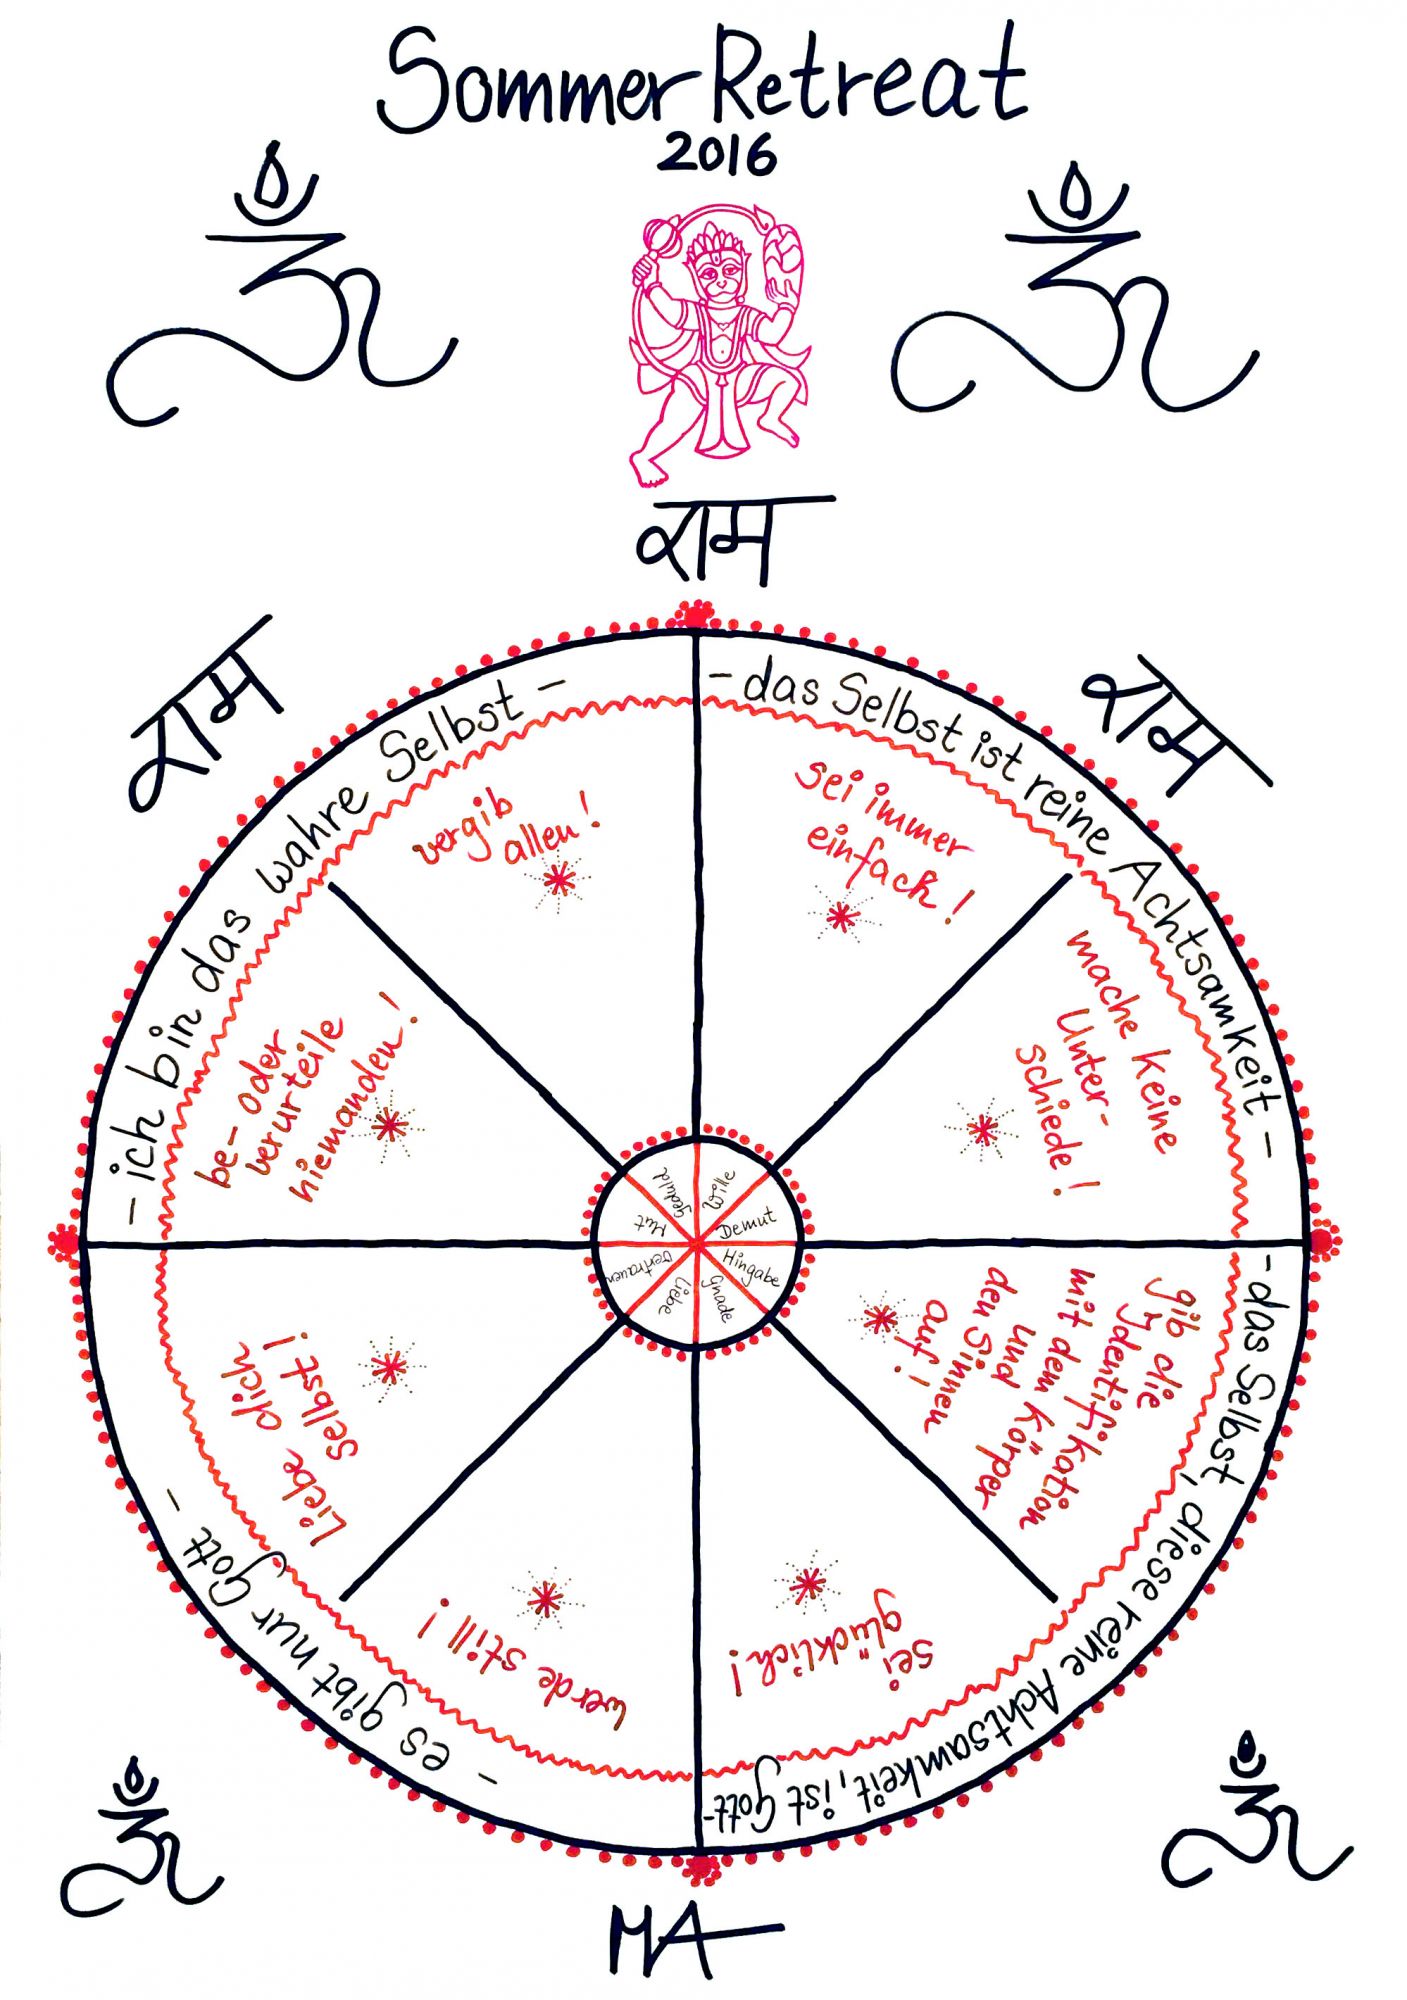 Sommer Retreat
2016
ॐ
ॐ
राम
राम
राम
- ich bin das wahre Selbst -
- das Selbst ist reine Achtsamkeit -
- das Selbst, diese reine Achtsamkeit, ist Gott -
- es gibt nur Gott -
sei immer
einfach!
mache keine
Unter-
schiede!
gib die
Identifikation
mit dem Körper
und
den Sinnen
auf!
sei
glücklich!
werde still!
Liebe dich
selbst!
be- oder
verurteile
niemanden!
vergib
allen!
Wille
Demut
Hingabe
Gnade
Liebe
Vertrauen
Mut
Geduld
ॐ
ॐ
MA